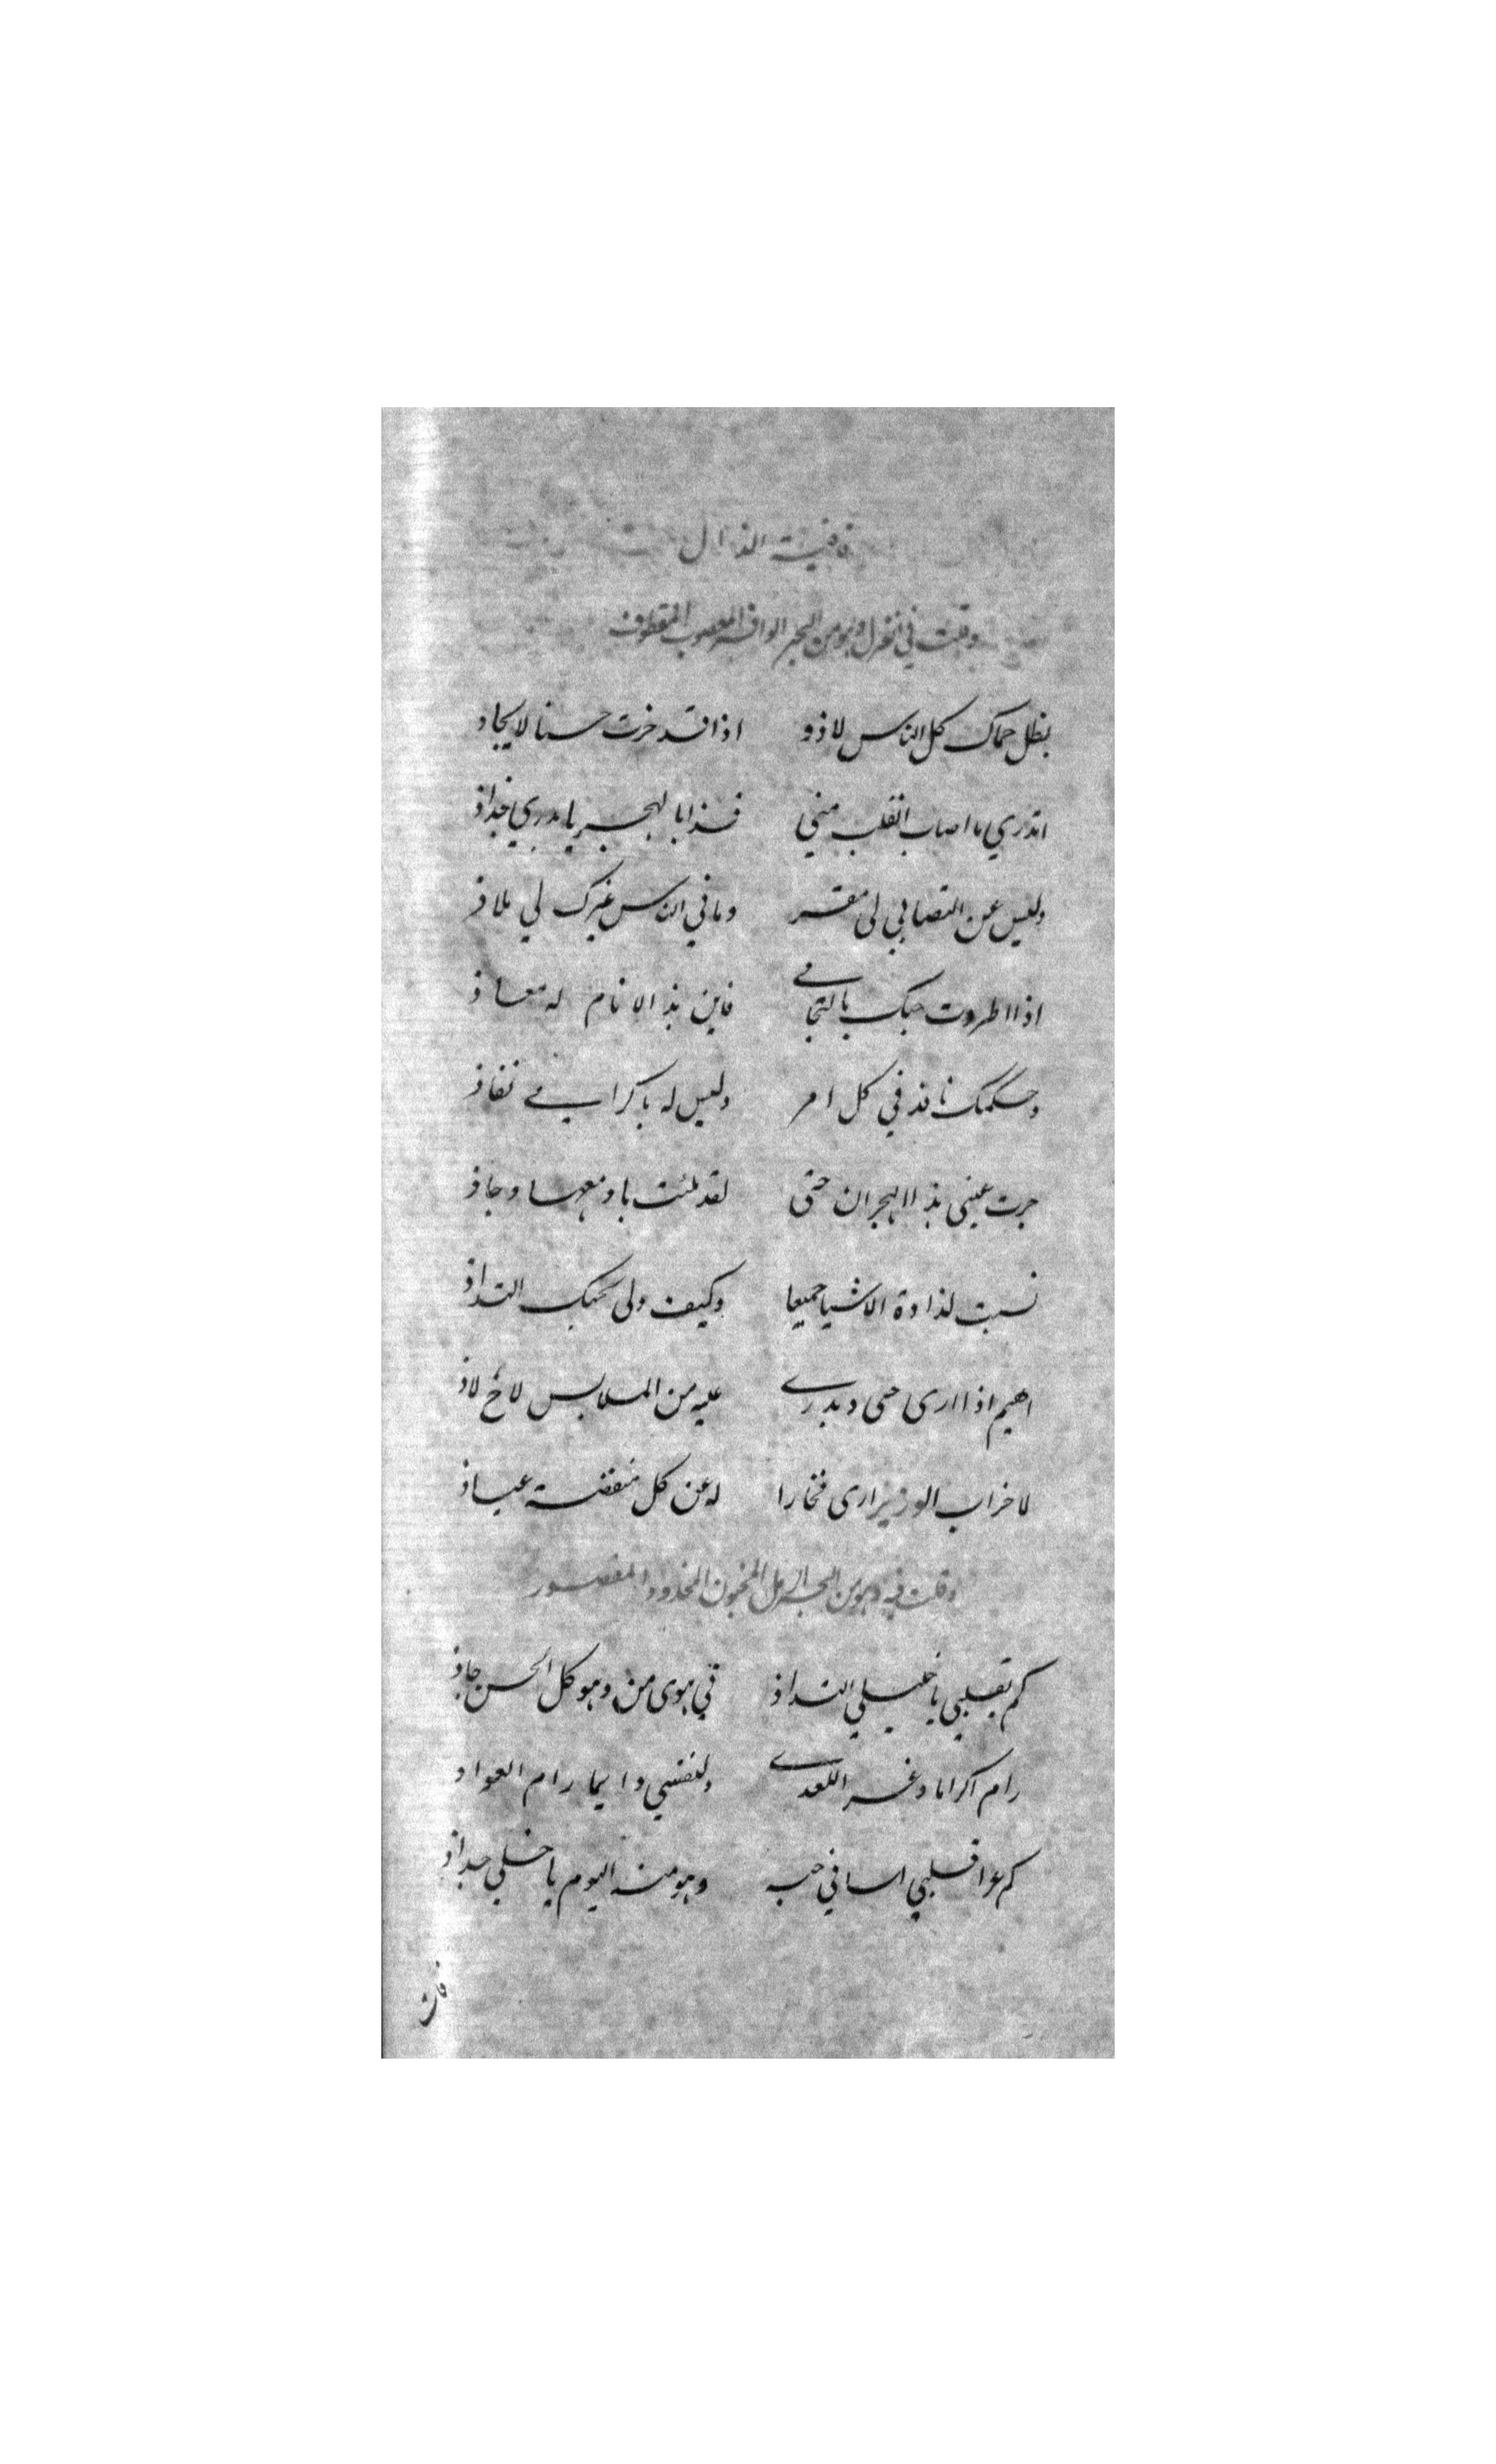 قافية الذال
وقلت في الغزل وهو من البحر الوافر المعصوب المقطوف
بظل حماك كل الناس لاذو اذا قد حزت حسنا لا يحاذ
اتدري ما اصاب القلب مني فذا بالهجر يا بدري جذاذ
وليس عن التصابي لى مفر وما في الناس غيرك لي ملاذ
اذا اطردت حبك بالتجافي فاين بذ الانام له معاذ
وحكمك نافذ في كل امر وليس له باكرامي نفاذ
جرت عيني بذ الهجران حتى لقد ملئت بادمعها وجاذ
نسيت لذاذة الاشيا جميعا وكيف ولى بحبك التذاذ
اهيم اذا ارى حى وبدري عليه من الملابس لاخ لاذ
لاخراب الوزير ارى فخارا له عن كل منقضة عياذ
وقلت فيه وهو من البحر الرمل المخبون المحذوف المقصور
كم بقلبي يا خليلي التذاذ في هوى من وهو كل الحسن حاذ
رام اكراما وغر اللعدى ولنفسي دايما رام العواذ
كم عرا قلبي اسا في حبه وهو منه اليوم يا خلي جذاذ